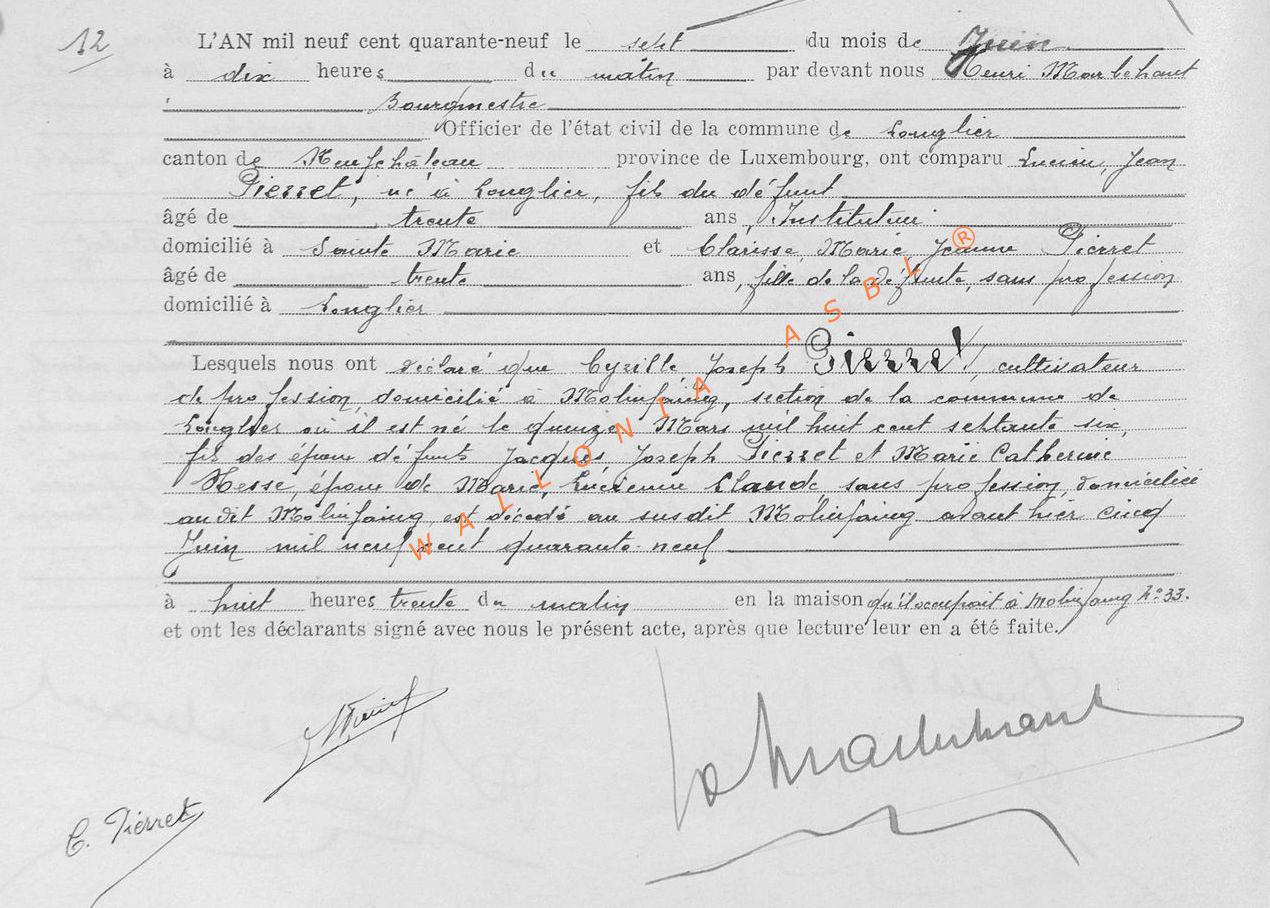 12
L'AN mil neuf cent quarante-neuf le sept du mois de Juin
à dix heures du matin par devant nous Henri Marbehant
Bourgmestre
Officier de l'état civil de la commune de Longlier
canton de Neufchâteau province de Luxembourg, ont comparu Lucien, Jean
Pierret, né à Longlier, fils du défunt
âgé de trente ans, Instituteur
domicilié à Sainte Marie et Clarisse, Marie, Jeanne Pierret
âgé de trente ans, fille de la défunte, sans profession
domicilié à Longlier
Lesquels nous ont déclaré que Cyrille Joseph Pierret, cultivateur
de profession, domicilié à Molinfaing, section de la commune de
Longlier où il est né le quinze Mars mil huit cent septante six,
fils des époux défunts Jacques, Joseph Pierret et Marie Catherine
Hesse, époux de Marie, Lucienne Claude, sans profession, domiciliée
au dit Molinfaing, est décédé au susdit Molinfaing avant hier cinq
Juin mil neuf cent quarante-neuf
à huit heures trente du matin en la maison qu'il occupait à Molinfaing N° 33.
et ont les déclarants signé avec nous le présent acte, après que lecture leur en a été faite.
C. Pierret
WALLONIA ASBL ®